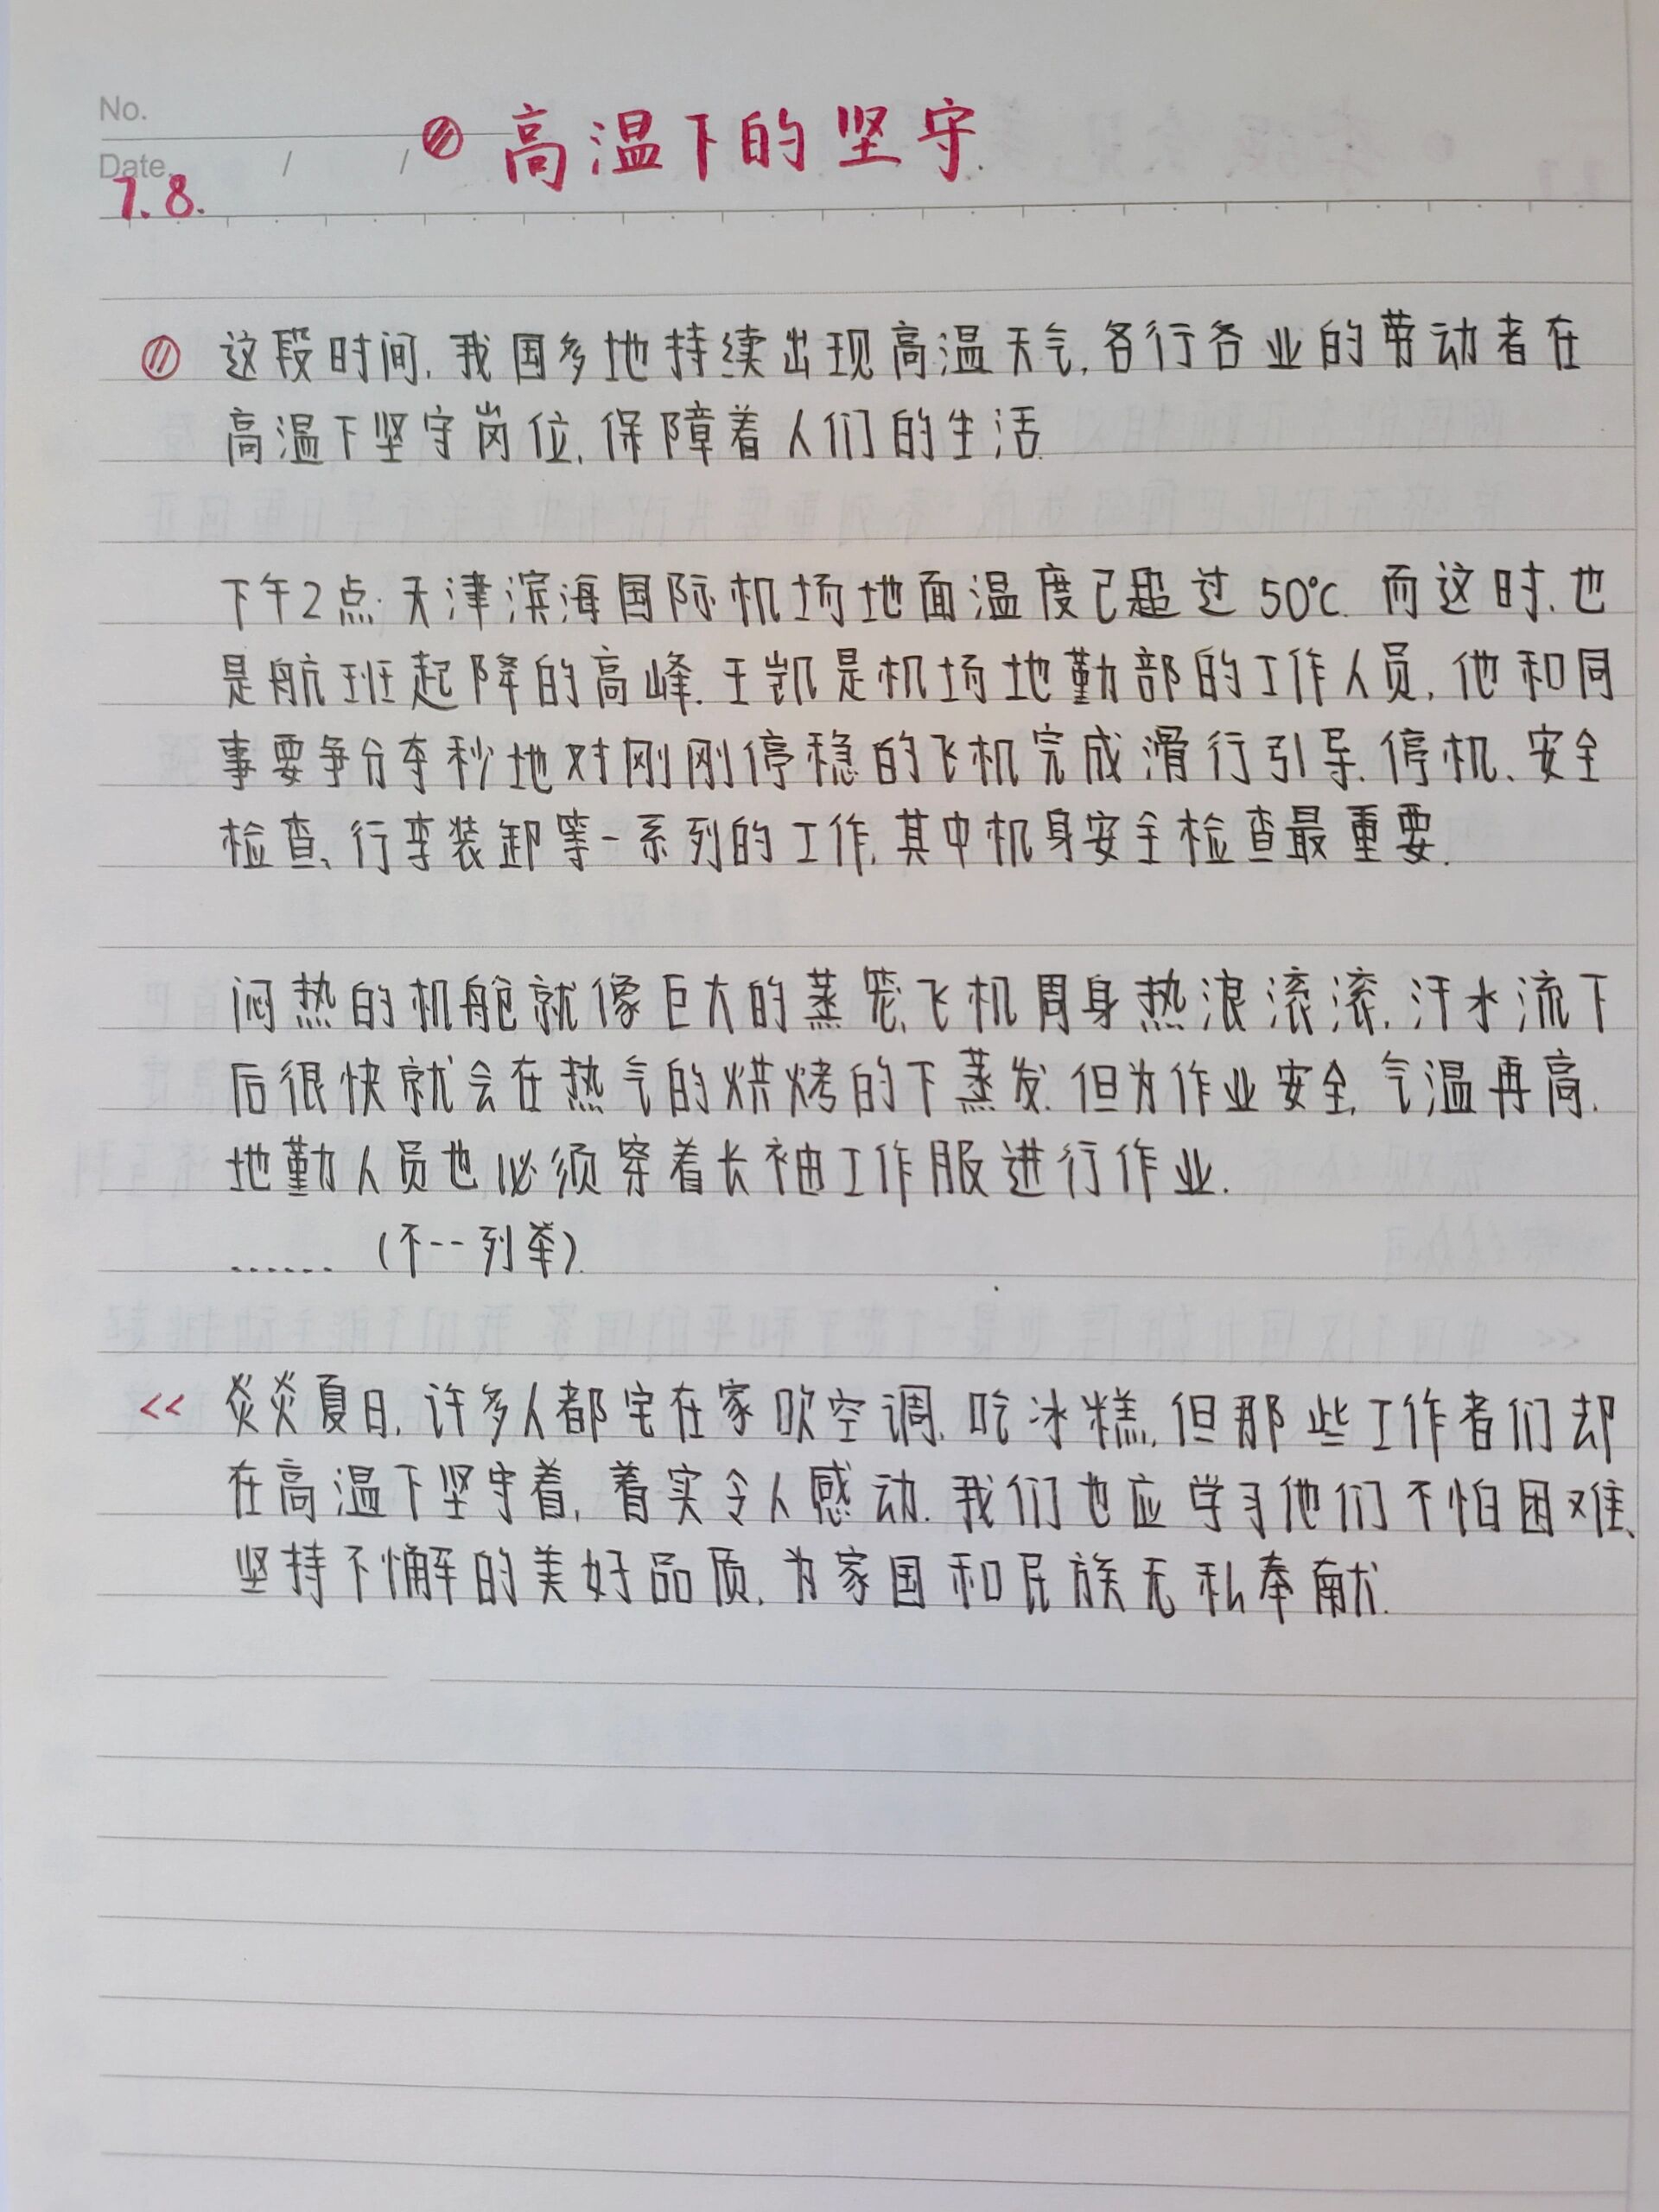 No.
高温下的坚守.
Date. / /
7.8.
这段时间,我国多地持续出现高温天气,各行各业的劳动者在
高温下坚守岗位,保障着人们的生活.
下午2点.天津滨海国际机场地面温度已超过50℃.而这时,也
是航班起降的高峰.王凯是机场地勤部的工作人员,他和同
事要争分夺秒地对刚刚停稳的飞机完成滑行引导、停机、安全
检查、行李装卸等一系列的工作,其中机身安全检查最重要.
闷热的机舱就像巨大的蒸笼,飞机周身热浪滚滚,汗水流下
后很快就会在热气的烘烤的下蒸发.但为作业安全,气温再高,
地勤人员也必须穿着长袖工作服进行作业.
...... (不一一列举).
<< 炎炎夏日,许多人都宅在家吹空调,吃冰糕,但那些工作者们却
在高温下坚守着,着实令人感动.我们也应学习他们不怕困难、
坚持不懈的美好品质,为家国和民族无私奉献.